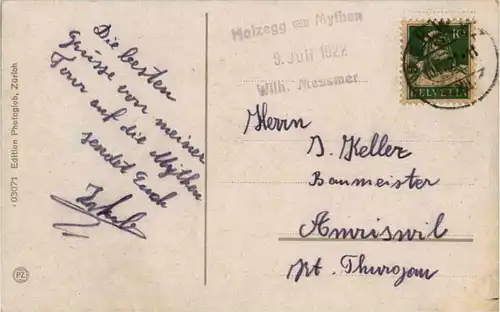 Die besten
Grüsse von meiner
Tour auf die Mythen
sendet Euch
Jakob
Holzegg am Mythen
9. Juli 1922
Wilh. Messmer
10
HELVETIA
Herrn
J. Keller
Baumeister
Amriswil
Kt. Thurgau
03071 Edition Photoglob, Zürich
PZ